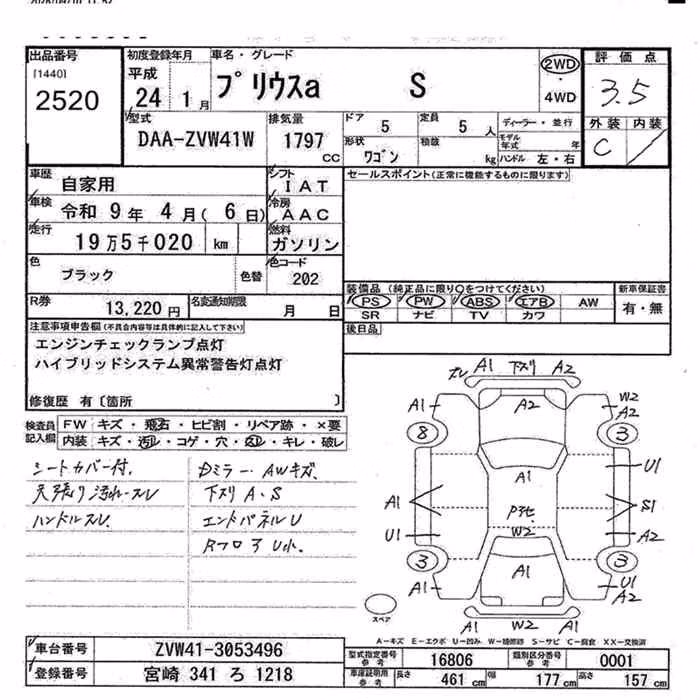 出品番号
[1440]
2520
初度登録年月
平成
24 1月
車名・グレード
プリウスa S
2WD
・
4WD
評価点
3.5
外装 内装
C
型式
DAA-ZVW41W
排気量
1797
CC
ドア 5
定員 5人
形状 ワゴン
積載 kg
ディーラー・並行
モデル年式 年
ハンドル 左・右
車歴 自家用
車検 令和 9年 4月( 6日)
走行 19万5千020 km
シフト IAT
冷房 AAC
燃料 ガソリン
色 ブラック
色替
色コード 202
R券 13,220円
名変通知期限 月 日
セールスポイント(正常に機能するものに限ります)
装備品 (純正品に限り○をつけてください)
PS PW ABS エアB AW
SR ナビ TV カワ
新車保証書
有・無
後日品
注意事項申告欄(不具合内容等は具体的に記入して下さい)
エンジンチェックランプ点灯
ハイブリッドシステム異常警告灯点灯
修復歴 有〔箇所 〕
検査員記入欄
FW キズ・飛石・ヒビ割・リペア跡・×要
内装 キズ・汚れ・コゲ・穴・スレ・キレ・破レ
シートカバー付.
天張り汚れ・スレ
ハンドルスレ
Dミラー・AWキズ
下スリ A・S
エンドパネルU
スレ A1 下スリ A2
A1 A2 W2 A2
8 3
A1 U1
A1 S1
U1 W2 A2
3 A1 3
A1 U1 A2
A1 W2 A1
スペア
A-キズ E-エクボ U-凹み W-補修跡 S-サビ C-腐食 XX-交換済
車台番号 ZVW41-3053496
登録番号 宮崎 341 ろ 1218
型式指定番号 参考 16806
類別区分番号 参考 0001
車庫証明用 参考 長さ 461cm 幅 177cm 高さ 157cm